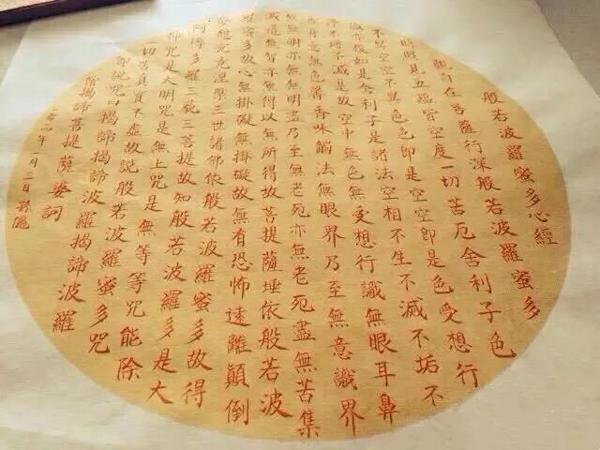 般若波羅蜜多心經
觀自在菩薩行深般若波羅蜜多
時照見五蘊皆空度一切苦厄舍利子色
不異空空不異色色即是空空即是色受想行
識亦復如是舍利子是諸法空相不生不滅不垢不
淨不增不減是故空中無色無受想行識無眼耳鼻
舌身意無色聲香味觸法無眼界乃至無意識界
無無明亦無無明盡乃至無老死亦無老死盡無苦集
滅道無智亦無得以無所得故菩提薩埵依般若波
羅蜜多故心無掛礙無掛礙故無有恐怖遠離顛倒
夢想究竟涅槃三世諸佛依般若波羅蜜多故得
阿耨多羅三藐三菩提故知般若波羅多是大
神咒是大明咒是無上咒是無等等咒能除
一切苦真實不虛故說般若波羅蜜多咒
即說咒曰揭諦揭諦波羅揭諦波羅
僧揭諦菩提薩婆訶
年一月三日孫儷